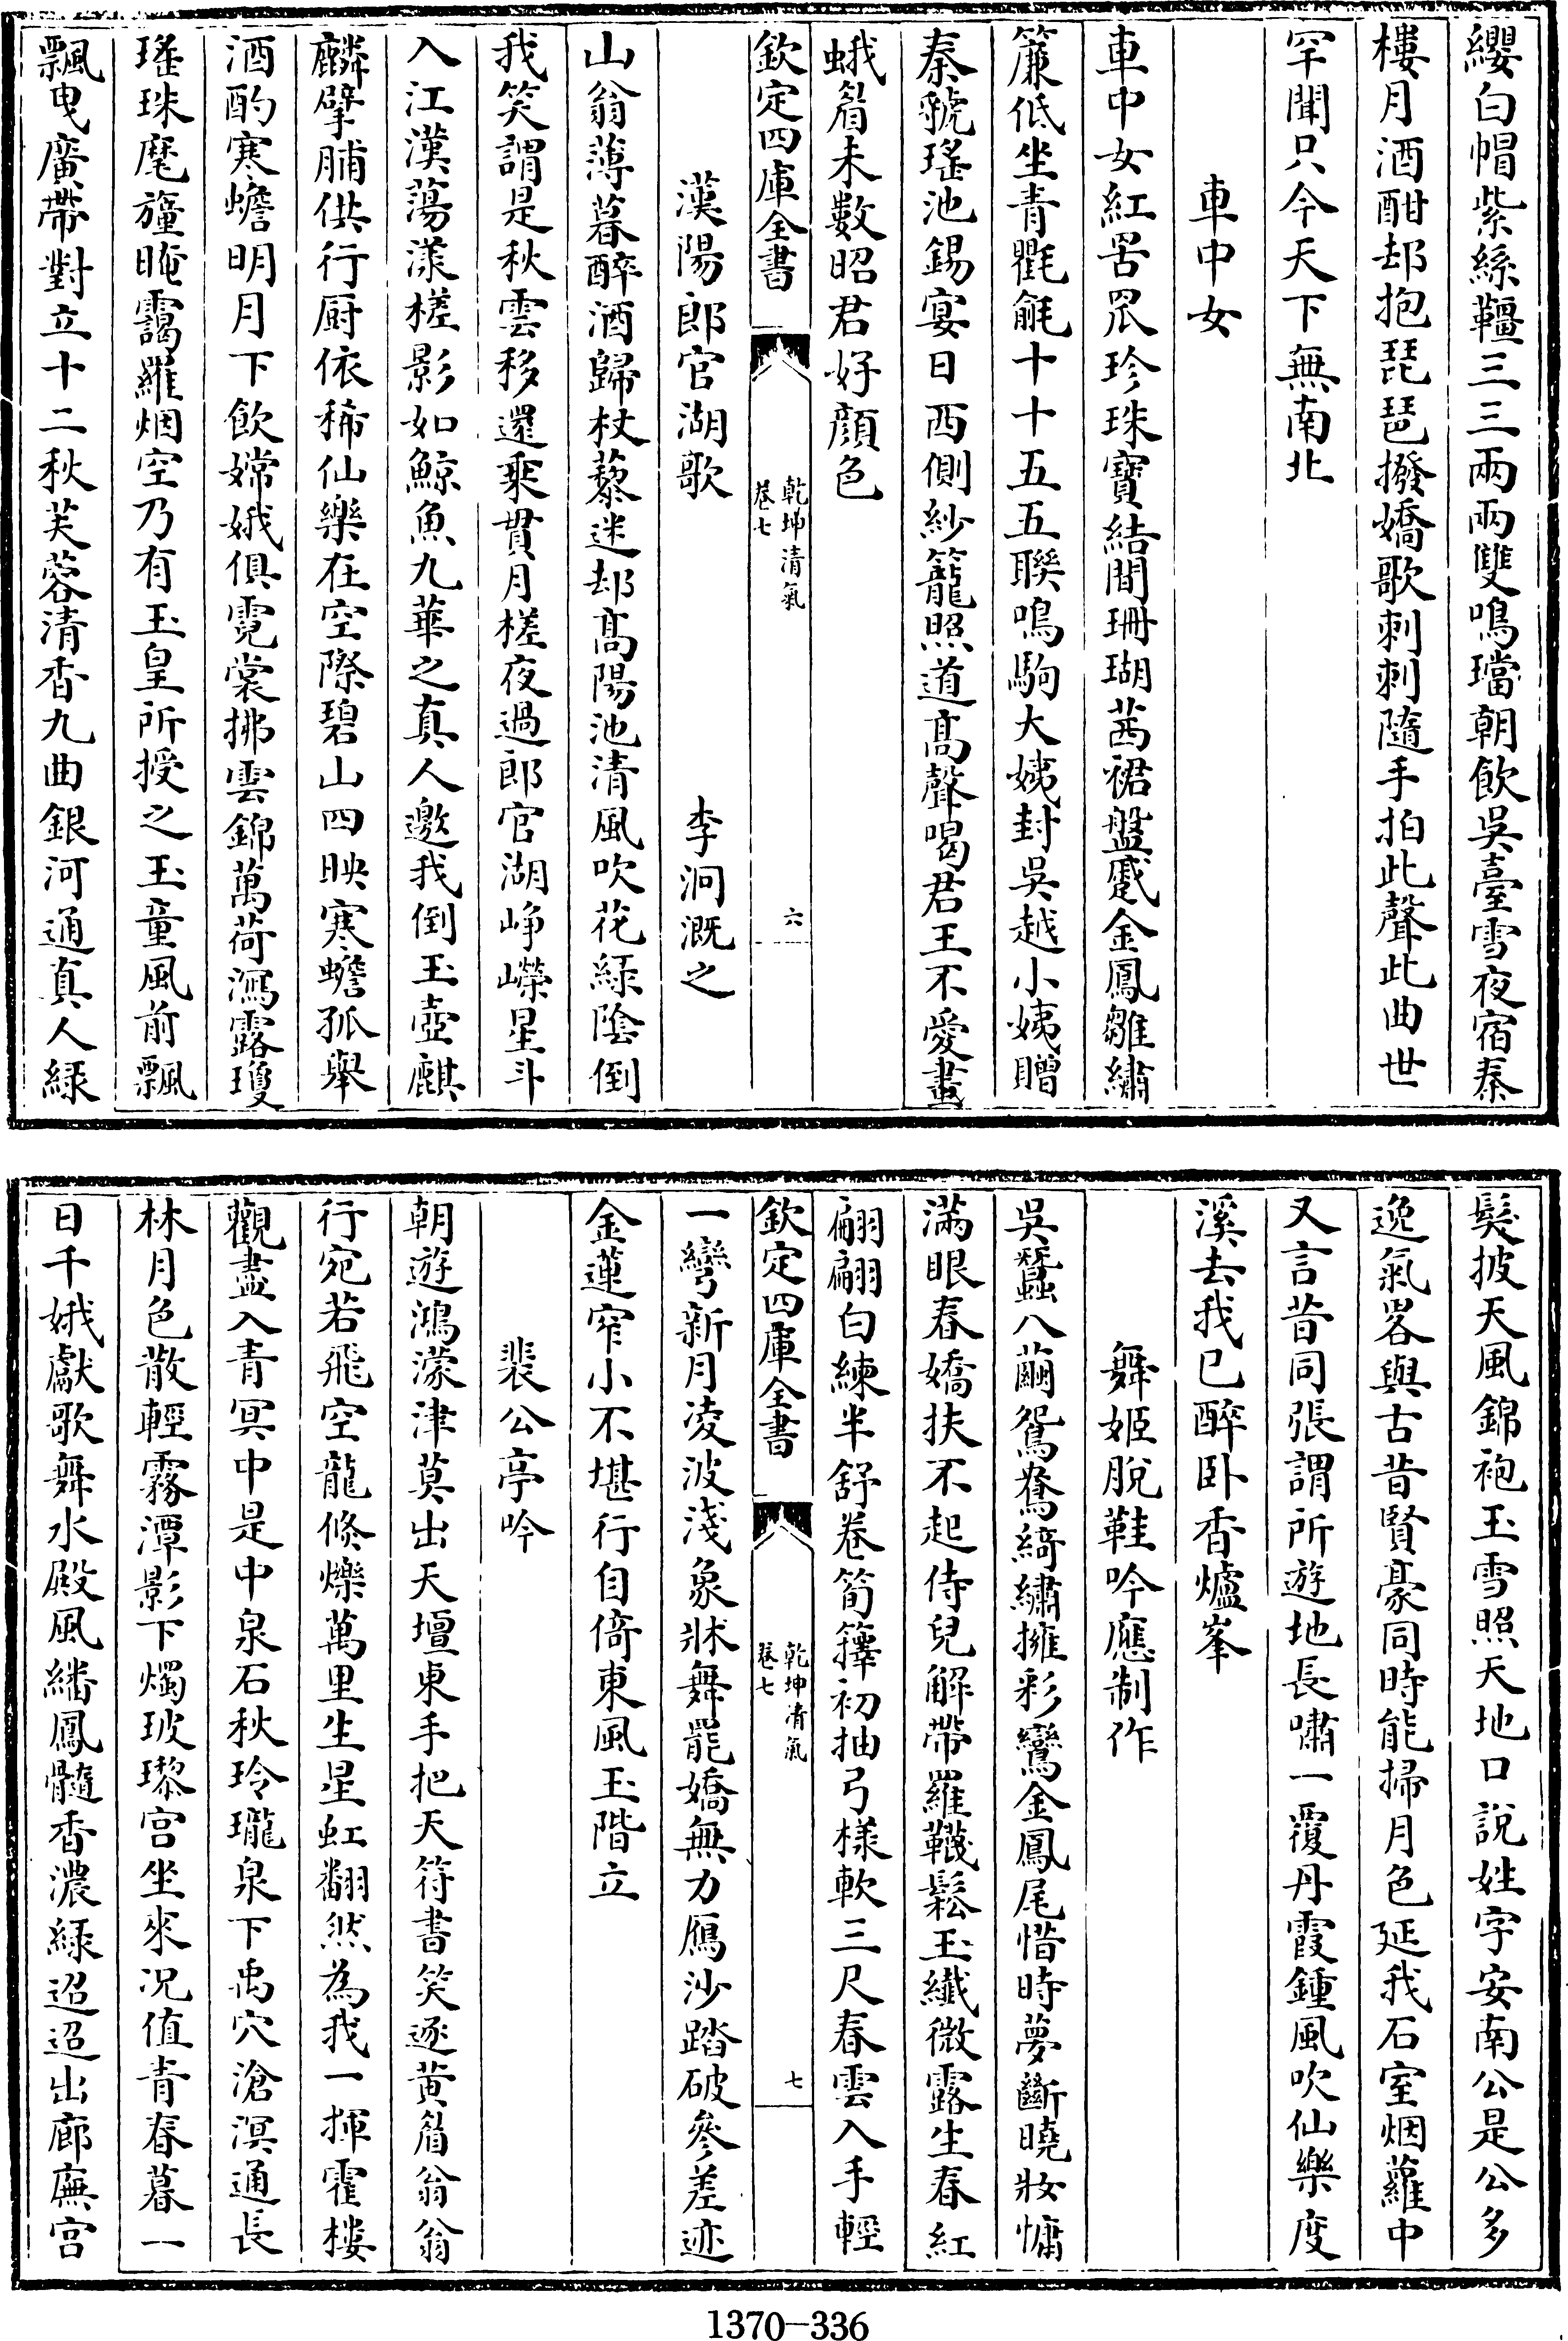 纓白帽紫絲韁三三兩兩雙鳴璫朝飲吳臺雪夜宿秦
樓月酒酣却抱琵琶撥嬌歌刺刺隨手拍此聲此曲世
罕聞只今天下無南北
車中女
車中女紅罘罳珍珠寶結間珊瑚茜裙盤蹙金鳳雛繡
簾低坐青氍毹十十五五聯鳴駒大姨封吳越小姨贈
秦虢瑤池錫宴日西側紗籠照道髙聲喝君王不愛畫
蛾眉未數昭君好顔色
欽定四庫全書
乾坤清氣
卷七
六
漢陽郎官湖歌
李泂溉之
山翁薄暮醉酒歸杖藜迷却髙陽池清風吹花緑陰倒
我笑謂是秋雲移還乘貫月槎夜過郎官湖峥嶸星斗
入江漢蕩漾槎影如鯨魚九華之真人邀我倒玉壺麒
麟擘脯供行厨依稀仙樂在空際碧山四映寒蟾孤舉
酒酌寒蟾明月下飲嫦娥俱霓裳拂雲錦萬荷瀉露瓊
瑤珠麾旛晻靄羅烟空乃有玉皇所授之玉童風前飄
飄曳廣帶對立十二秋芙蓉清香九曲銀河通真人緑
髮披天風錦袍玉雪照天地口說姓字安南公是公多
逸氣畧與古昔賢豪同時能掃月色延我石室烟蘿中
又言昔同張謂所遊地長嘯一覆丹霞鍾風吹仙樂度
溪去我已醉卧香爐峯
舞姬脫鞋吟應制作
吳蠶八繭鴛鴦綺繡擁彩鸞金鳳尾惜時夢斷曉妝慵
滿眼春嬌扶不起侍兒解帶羅韈鬆玉纖微露生春紅
翩翩白練半舒卷筍籜初抽弓様軟三尺春雲入手輕
欽定四庫全書
乾坤清氣
卷七
七
一彎新月凌波淺象牀舞罷嬌無力鴈沙踏破參差迹
金蓮窄小不堪行自倚東風玉階立
裴公亭吟
朝遊鴻濛津莫出天壇東手把天符書笑逐黄眉翁翁
行宛若飛空龍倐爍萬里生星虹翻然為我一揮霍樓
觀盡入青冥中是中泉石秋玲瓏泉下禹穴滄溟通長
林月色散輕霧潭影下燭玻瓈宫坐來况值青春暮一
日千娥獻歌舞水殿風繙鳳髓香濃緑迢迢出廊廡宫
1370-336